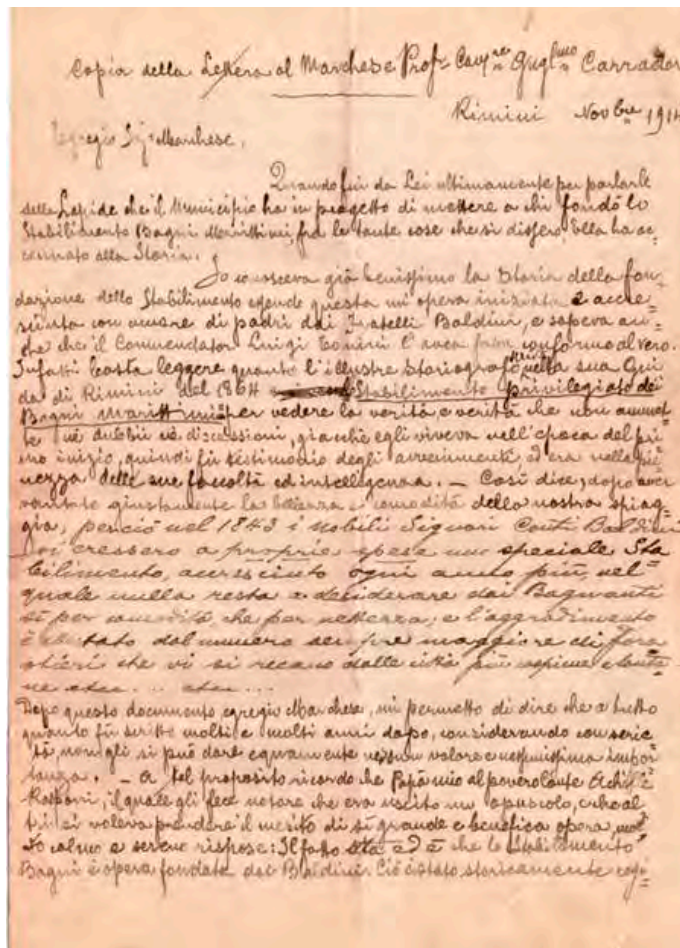 Copia della Lettera al Marchese Prof. Cav.re Gugl.mo Carrador
Rimini Nov.bre 1914
Egregio Sig. Marchese,
Quando fui da Lei ultimamente per parlarle
della Lapide che il Municipio ha in progetto di mettere a chi fondò lo
Stabilimento Bagni Marittimi, fra le tante cose che si dissero Ella ha ac-
cennato alla Storia.
Io conosceva già benissimo la Storia della fon-
dazione dello Stabilimento essendo questa un'opera iniziata e accre-
sciuta con amore di padri dai Fratelli Baldini, e sapeva an-
che che il Commendator Luigi Tonini l'avea conforme al vero.
Infatti basta leggere quanto l'illustre Storiografo scrive nella sua Gui
da di Rimini del 1864 Stabilimento privilegiato dei
Bagni Marittimi per vedere la verità e verità che non ammet-
te nè dubbii nè discussioni, giacchè egli viveva nell'epoca del pri-
mo inizio, quindi fù testimonio degli avvenimenti, ed era nella pie-
nezza delle sue facoltà ed intelligenza. - Così dice, dopo aver
vantate giustamente la bellezza e comodità della nostra spiag-
gia, perciò nel 1843 i Nobili Signori Conti Baldini
vi eressero a proprie spese uno speciale Sta
bilimento, accresciuto ogni anno più, nel
quale nulla resta a desiderare dai Bagnanti
sì per comodità, che per nettezza; e l'aggradimento
è tato dal numero sempre maggiore di fore
stieri che vi si recano dalle città più cospicue e lonta-
ne etc... etc...
Dopo questo documento egregio Marchese, mi permetto di dire che a tutto
quanto fù scritto molti e molti anni dopo, considerando con serie-
tà, non gli si può dare equamente nessun valore e nessunissima impor
tanza. - A tal proposito ricordo che Papà mio al povero Conte Achille
Rasponi, il quale gli fece notare che era uscito un opuscolo, e che al
tri si voleva prendere il merito di sì grande e benefica opera, mol-
to calmo e sereno rispose: Il fatto sta ed è che lo Stabilimento
Bagni è opera fondata dai Baldini. Ciò è stato storicamente regi-